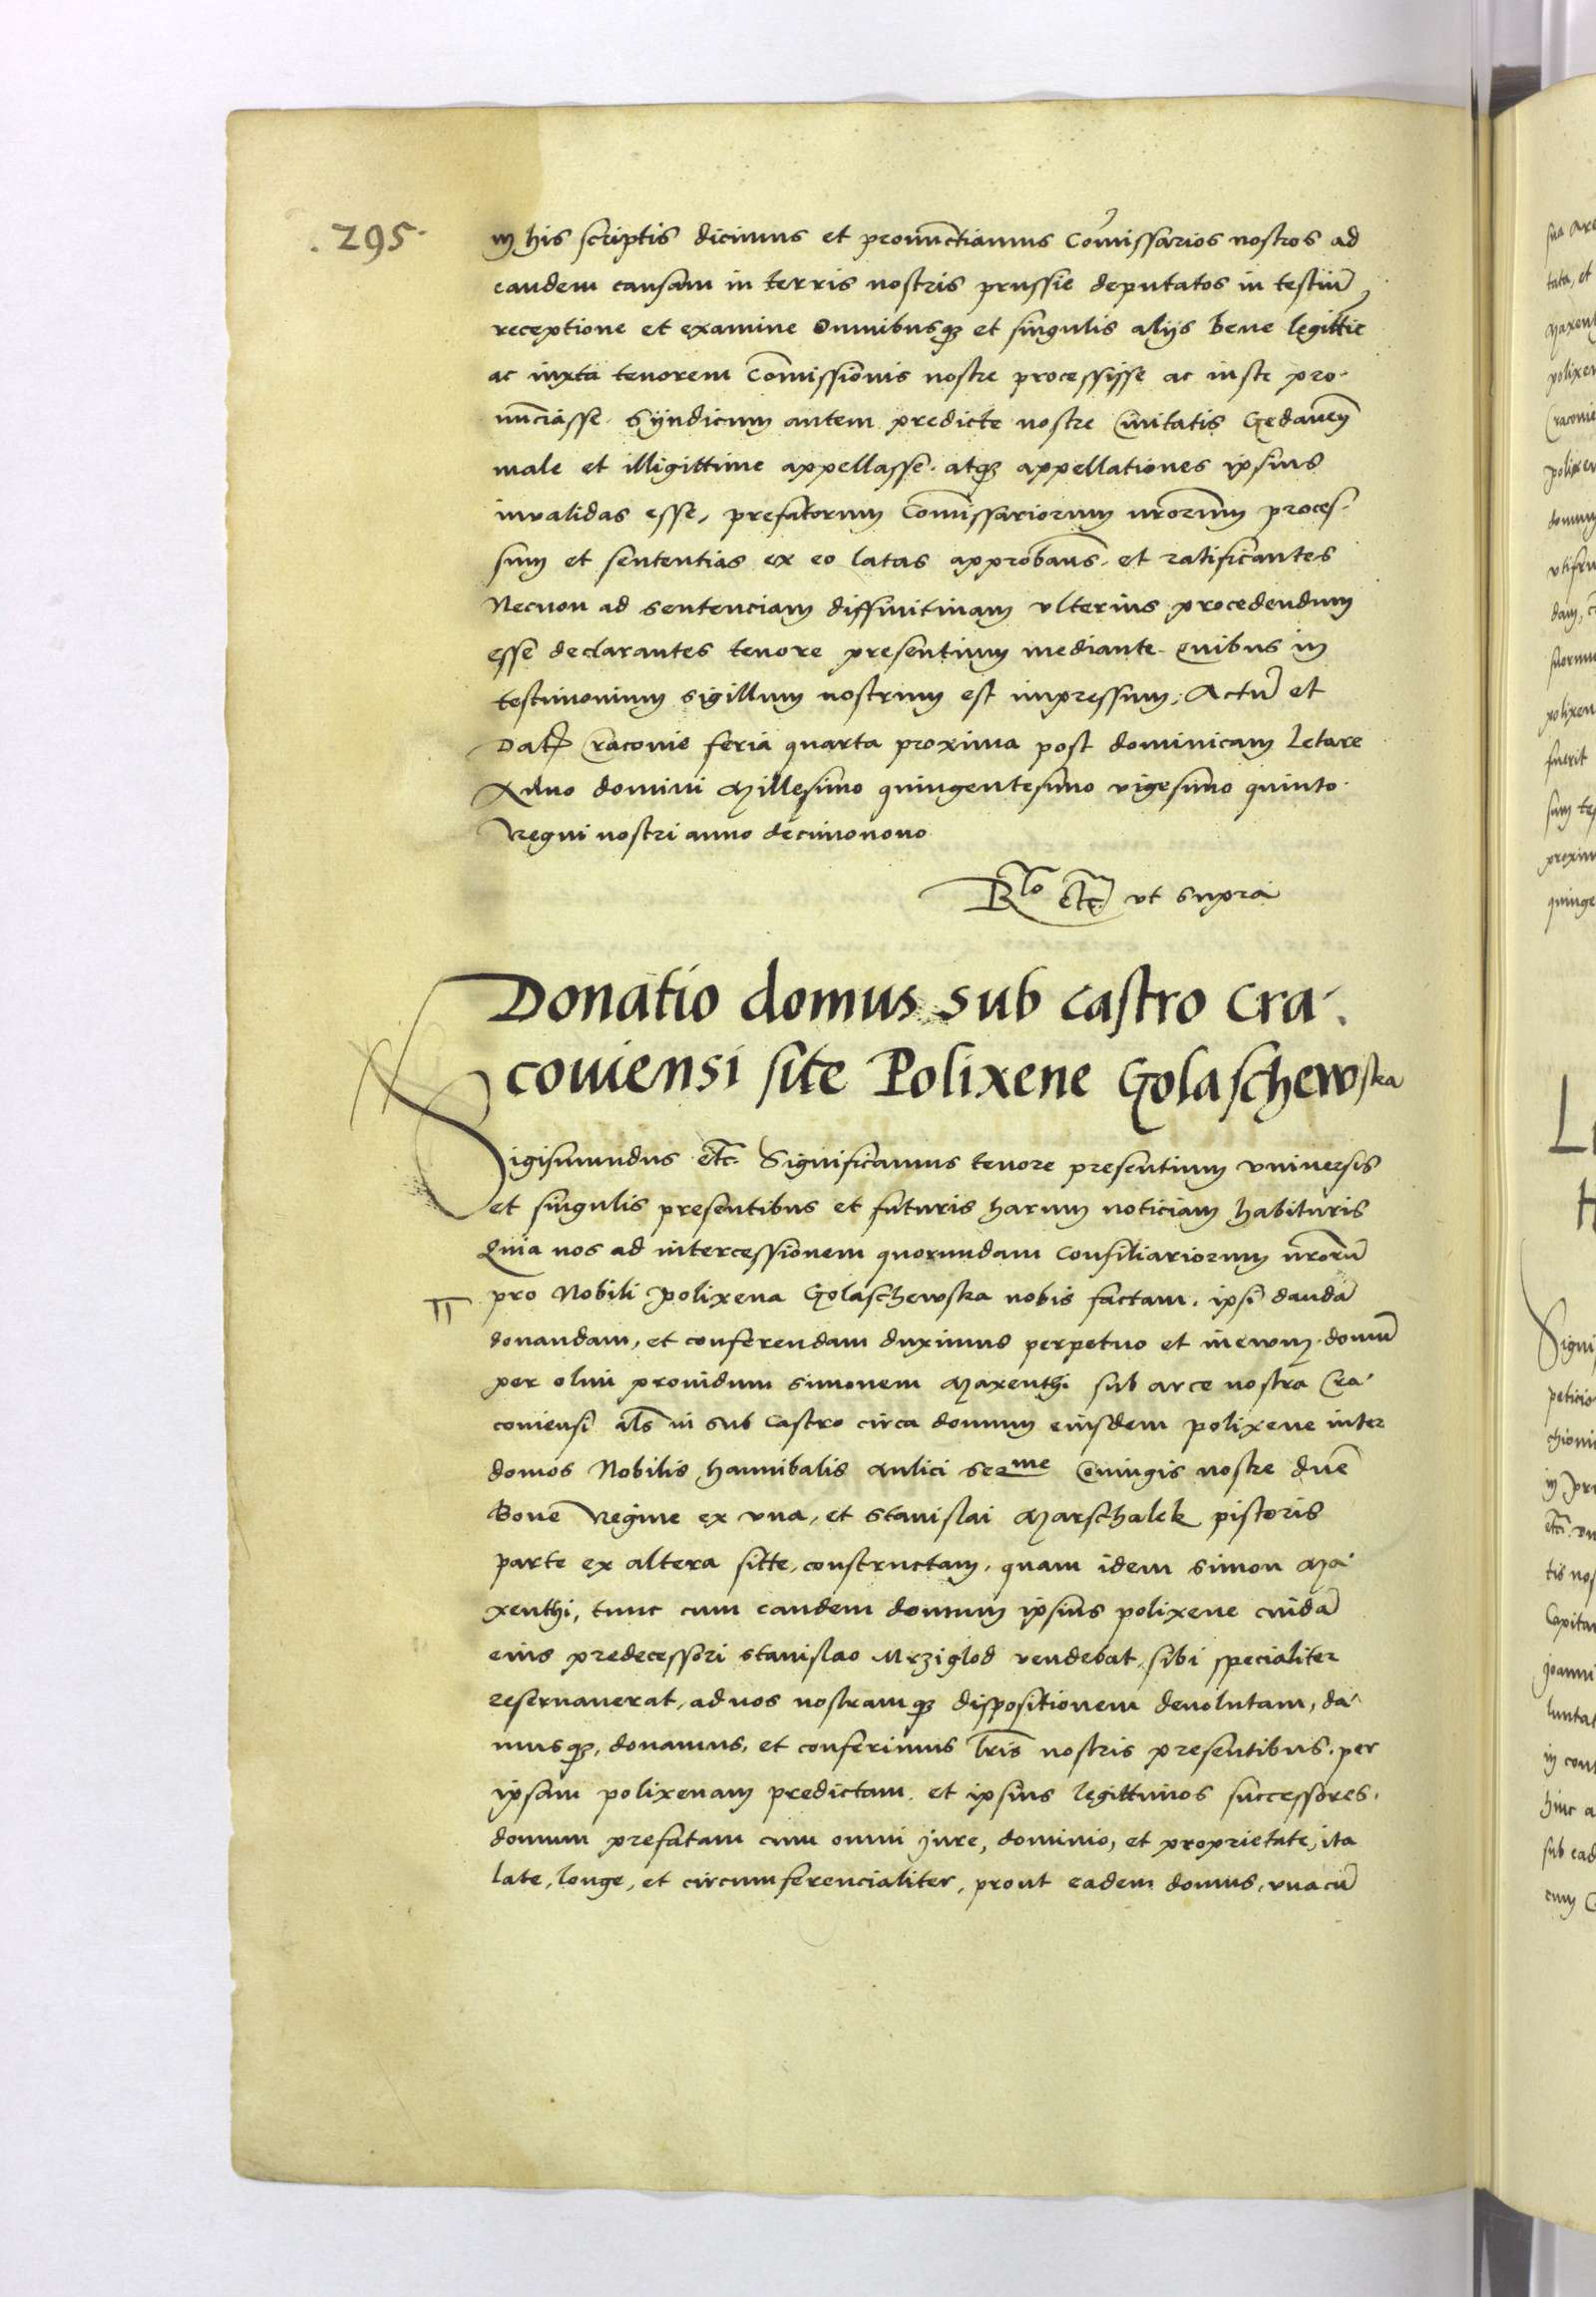 .295.
in his scriptis dicimus et pronunctiamus Comissarios nostros ad
eandem causam in terris nostris prussie deputatos in testiũ
receptione et examine Omnibusq3 et singulis alijs bene legittie
ac iuxta tenorem Com̃issionis nostre processisse ac iuste pro-
nũciasse. Syndicum autem predicte nostre Ciuitatis Gedaneñ
male et illigittime appellasse. atq3 appellationes ipsius
inualidas esse, prefatorum Com̃issariorum nr̃orum proces-
sum et sententias ex eo latas approbañs. et ratificantes
Necnon ad sentenciam diffinitiuam vlterius procedendum
esse declarantes tenore presentium mediante. Quibus in
testimonium sigillum nostrum est impressum. Actũ et
Dat̃ Cracouie feria quarta proxima post dominicam Letare
Anno domini Millesimo quingentesimo vigesimo quinto.
Regni nostri anno decimonono
Rlo etc̃ vt supra
Donatio domus sub castro Cra-
couiensi site Polixene Golaschewska
Sigismundus etc̃. Significamus tenore presentium vniuersis
et singulis presentibus et futuris harum noticiam habituris
Quia nos ad intercessionem quorundam Consiliariorum nr̃orũ
pro Nobili Polixena Golaschewska nobis factam. ipsi dandã
donandam, et conferendam duximus perpetuo et in ewum. domũ
per olim prouidum simonem Maxenthi sub arce nostra Cra-
couiensi al̃s in sub Castro circa domum eiusdem polixene inter
domos Nobilis hannibalis aulici serme Coniugis nostre dñe
Bone Regine ex vna, et stanislai Marschalek pistoris
parte ex altera sitte, constructam, quam idem simon Ma-
xenthi, tunc cum eandem domum ipsius polixene cuidã
eius predecessori stanislao Mrziglod vendebat, sibi specialiter
reseruauerat, ad nos nostramq3 dispositionem deuolutam, da-
musq3, donamus, et conferimus lr̃is nostris presentibus. per
ipsam polixenam predictam. et ipsius legittimos successores.
domum prefatam cum omni jure, dominio, et proprietate, ita
late, longe, et circumferencialiter, prout eadem domus, vnacũ